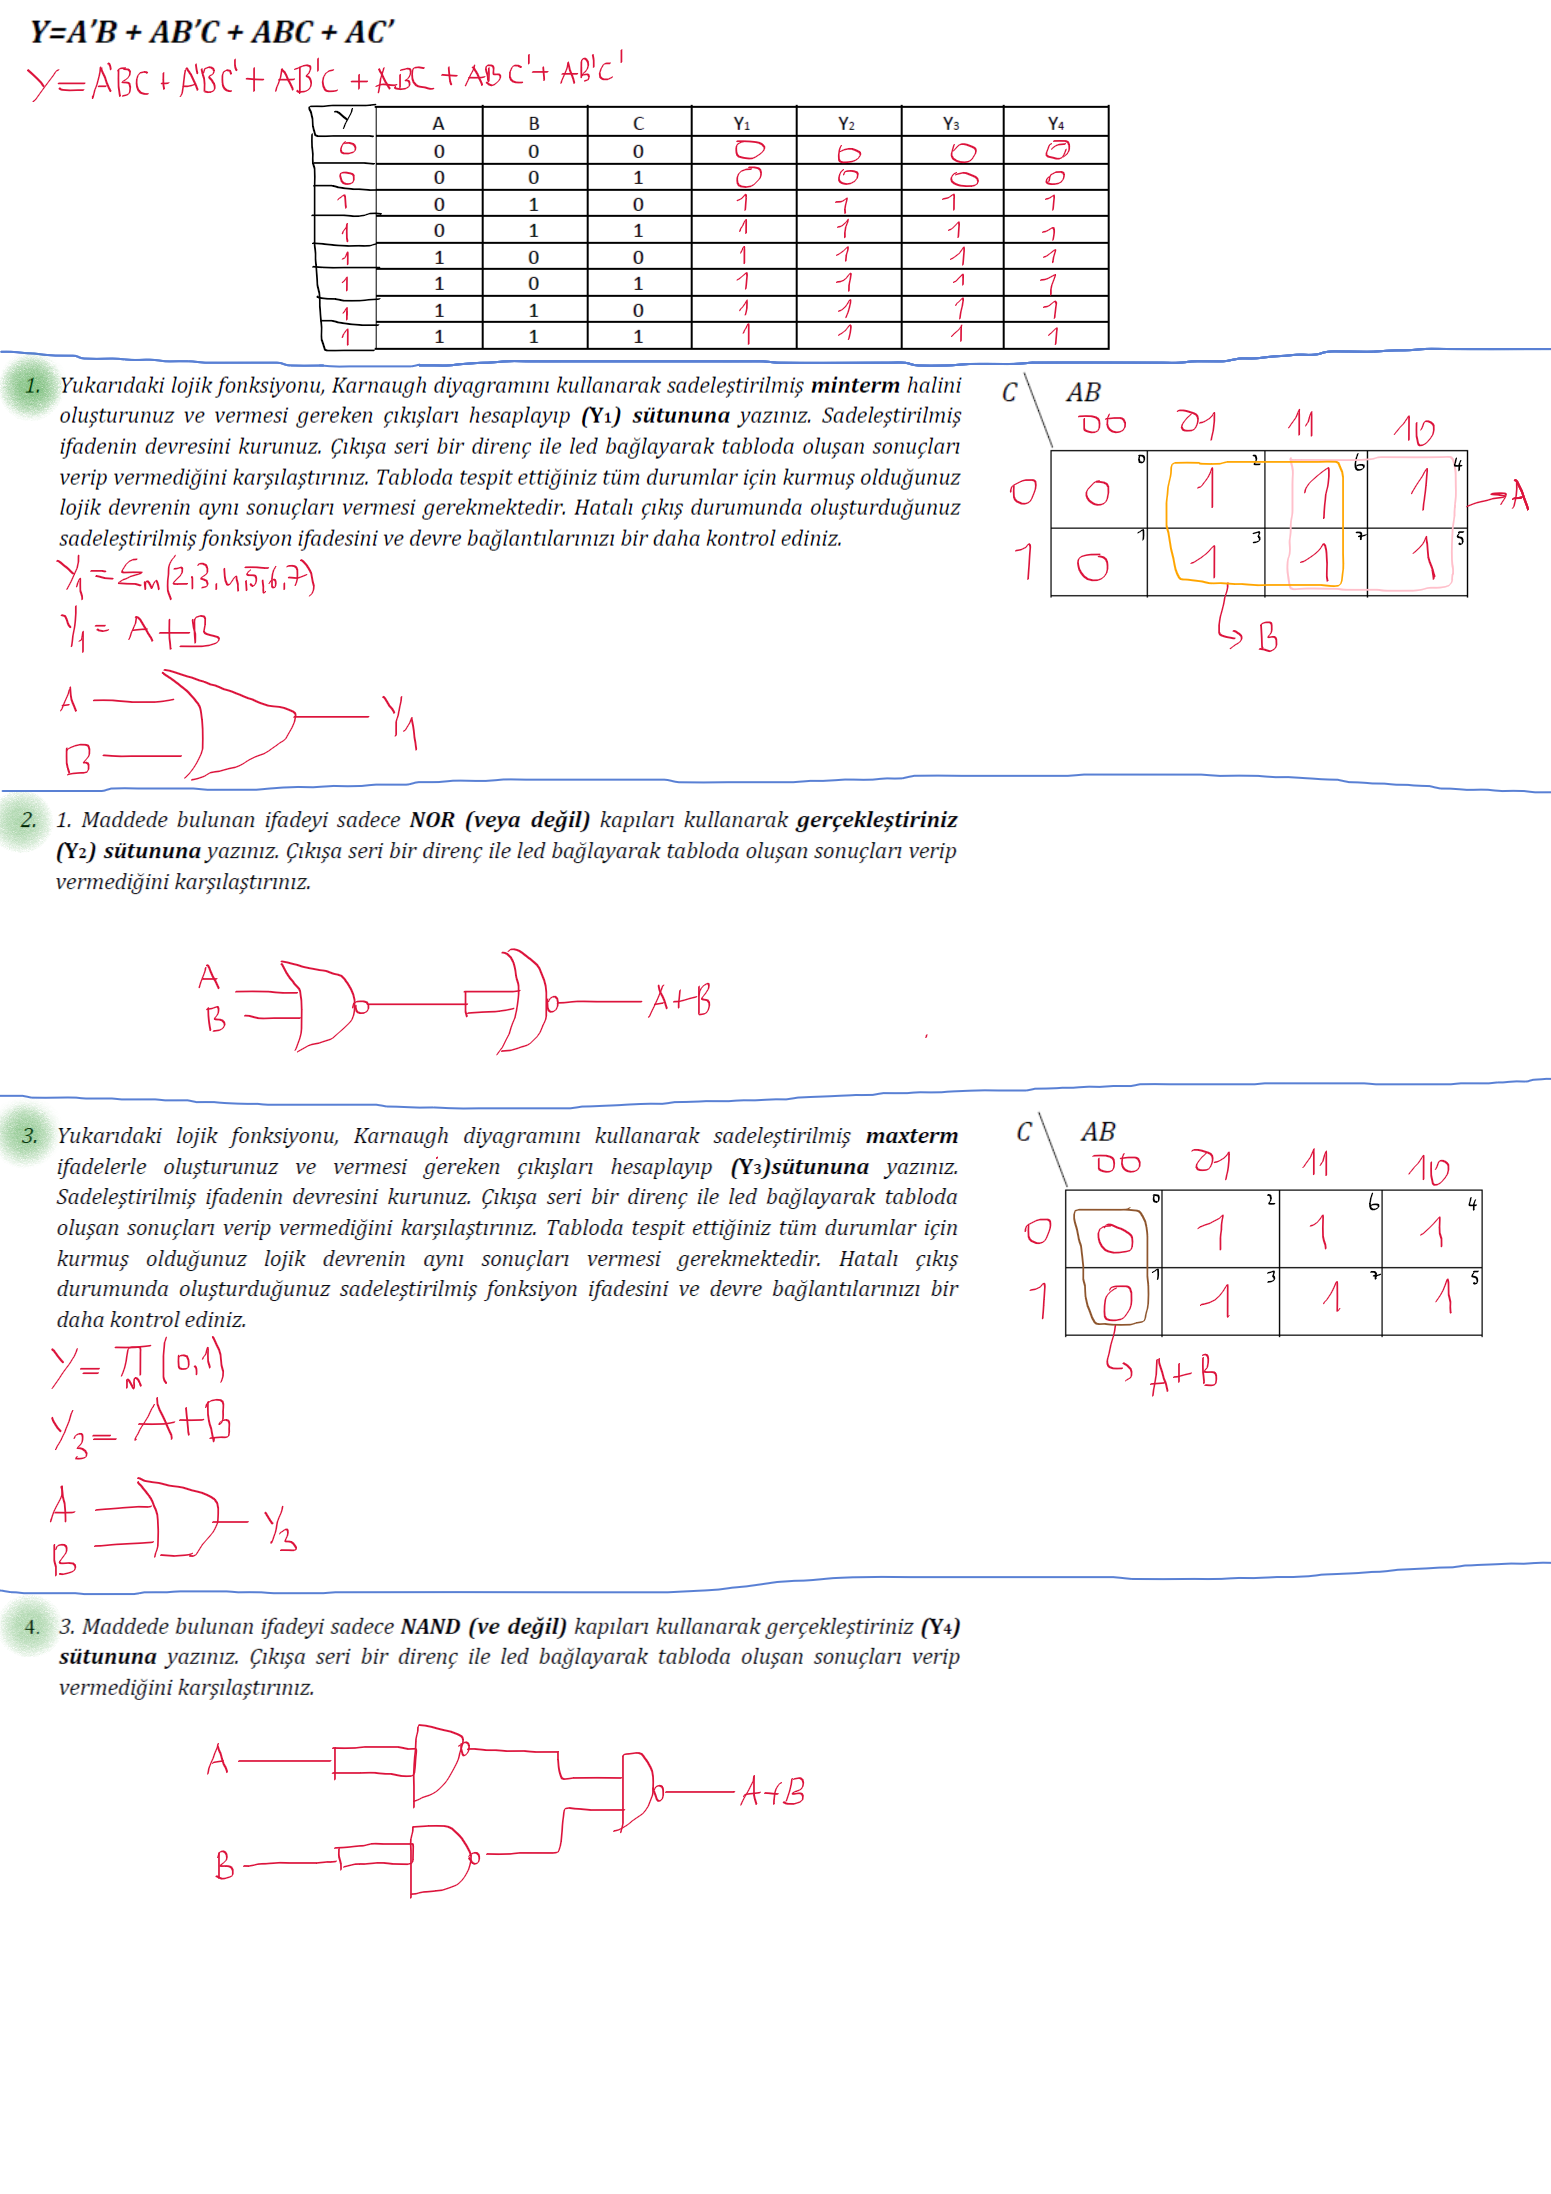 Y=A'B + AB'C + ABC + AC'
Y=A'BC + A'BC' + AB'C + ABC + ABC' + AB'C'
Y A B C Y1 Y2 Y3 Y4
0 0 0 0 0 0 0 0
0 0 0 1 0 0 0 0
1 0 1 0 1 1 1 1
1 0 1 1 1 1 1 1
1 1 0 0 1 1 1 1
1 1 0 1 1 1 1 1
1 1 1 0 1 1 1 1
1 1 1 1 1 1 1 1
1. Yukarıdaki lojik fonksiyonu, Karnaugh diyagramını kullanarak sadeleştirilmiş minterm halini
oluşturunuz ve vermesi gereken çıkışları hesaplayıp (Y1) sütununa yazınız. Sadeleştirilmiş
ifadenin devresini kurunuz. Çıkışa seri bir direnç ile led bağlayarak tabloda oluşan sonuçları
verip vermediğini karşılaştırınız. Tabloda tespit ettiğiniz tüm durumlar için kurmuş olduğunuz
lojik devrenin aynı sonuçları vermesi gerekmektedir. Hatalı çıkış durumunda oluşturduğunuz
sadeleştirilmiş fonksiyon ifadesini ve devre bağlantılarınızı bir daha kontrol ediniz.
C AB
00 01 11 10
0 0 0 1 2 1 6 1 4
A
1 0 1 1 3 1 7 1 5
B
Y1 = Σm(2,3,4,5,6,7)
Y1 = A+B
A
B
Y1
2. 1. Maddede bulunan ifadeyi sadece NOR (veya değil) kapıları kullanarak gerçekleştiriniz
(Y2) sütununa yazınız. Çıkışa seri bir direnç ile led bağlayarak tabloda oluşan sonuçları verip
vermediğini karşılaştırınız.
A
B
A+B
3. Yukarıdaki lojik fonksiyonu, Karnaugh diyagramını kullanarak sadeleştirilmiş maxterm
ifadelerle oluşturunuz ve vermesi gereken çıkışları hesaplayıp (Y3)sütununa yazınız.
Sadeleştirilmiş ifadenin devresini kurunuz. Çıkışa seri bir direnç ile led bağlayarak tabloda
oluşan sonuçları verip vermediğini karşılaştırınız. Tabloda tespit ettiğiniz tüm durumlar için
kurmuş olduğunuz lojik devrenin aynı sonuçları vermesi gerekmektedir. Hatalı çıkış
durumunda oluşturduğunuz sadeleştirilmiş fonksiyon ifadesini ve devre bağlantılarınızı bir
daha kontrol ediniz.
C AB
00 01 11 10
0 0 0 1 2 1 6 1 4
1 0 1 1 3 1 7 1 5
A+B
Y = πm(0,1)
Y3 = A+B
A
B
Y3
4. 3. Maddede bulunan ifadeyi sadece NAND (ve değil) kapıları kullanarak gerçekleştiriniz (Y4)
sütununa yazınız. Çıkışa seri bir direnç ile led bağlayarak tabloda oluşan sonuçları verip
vermediğini karşılaştırınız.
A
A+B
B